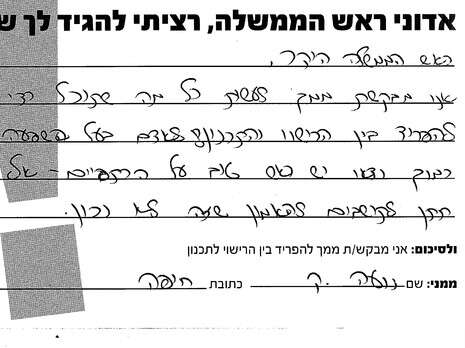 אדוני ראש הממשלה, רציתי להגיד לך ש
ראש הממשלה היקר,
אני מבקשת ממך לעשות כל מה שתוכל כדי
להפריד בין הרישוי והתכנון לאדם בעל השפעה
כמוך יש כאב על - אל
תתן לקושבים להאמין שזה לא נכון.
ולסיכום: אני מבקש/ת ממך להפריד בין הרישוי לתכנון
ממני: שם נועה ק. כתובת חיפה